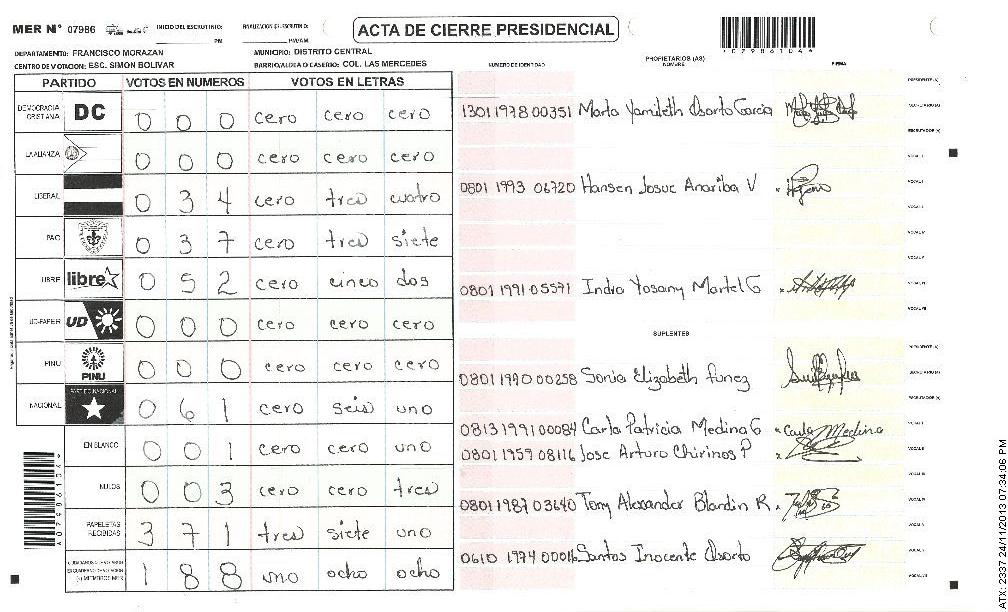 MER Nº 07986
INICIO DEL ESCRUTINIO:
PM
FINALIZACION DEL ESCRUTINIO:
PM/AM
ACTA DE CIERRE PRESIDENCIAL
DEPARTAMENTO: FRANCISCO MORAZAN
MUNICIPIO: DISTRITO CENTRAL
CENTRO DE VOTACION: ESC. SIMON BOLIVAR
BARRIO/ALDEA O CASERIO: COL. LAS MERCEDES
PARTIDO VOTOS EN NUMEROS VOTOS EN LETRAS
DEMOCRACIA CRISTIANA DC 0 0 0 cero cero cero
LA ALIANZA 0 0 0 cero cero cero
LIBERAL 0 3 4 cero tres cuatro
PAC 0 3 7 cero tres siete
LIBRE libre 0 5 2 cero cinco dos
UD-FAPER UD 0 0 0 cero cero cero
PINU PINU 0 0 0 cero cero cero
NACIONAL PARTIDO NACIONAL 0 6 1 cero seis uno
EN BLANCO 0 0 1 cero cero uno
NULOS 0 0 3 cero cero tres
PAPELETAS RECIBIDAS 3 7 1 tres siete uno
1 8 8 uno ocho ocho
NUMERO DE IDENTIDAD
PROPIETARIOS (AS)
NOMBRE
FIRMA
1301 1978 00351 Marta Yamileth Osorto Garcia
0801 1993 06720 Hansen Josue Anariba V
0801 1991 05571 India Yosany Martel G
SUPLENTES
0801 1990 00258 Sonia Elizabeth funez
0813 1991 00084 Carla Patricia Medina G Carla Medina
0801 1959 08116 Jose Arturo Chirinos P
0801 1987 03640 Tony Alexander Blandin R.
0610 1974 00016 Santos Inocente Osorto
PRESIDENTE (A)
SECRETARIO (A)
ESCRUTADOR (A)
VOCAL I
PRESIDENTE (A)
SECRETARIO (A)
ESCRUTADOR (A)
ATX: 2337 24/11/2013 07:34:06 PM